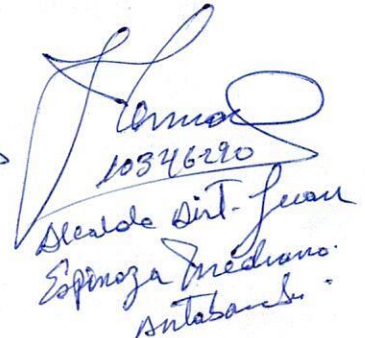 10346290
Alcalde Dist. Juan
Espinoza Medrano.
Antabamba.